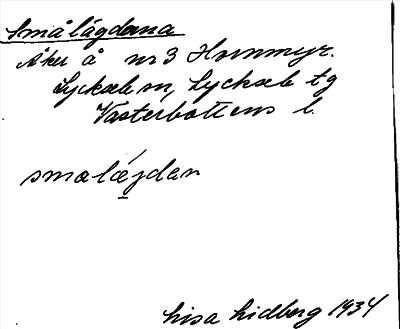 Smålägdana
Åker å nr 3 Hornmyr.
Lycksele sn, Lycksele tg
Västerbottens l.
smalǽ̣jdan
Lisa Lidberg 1934